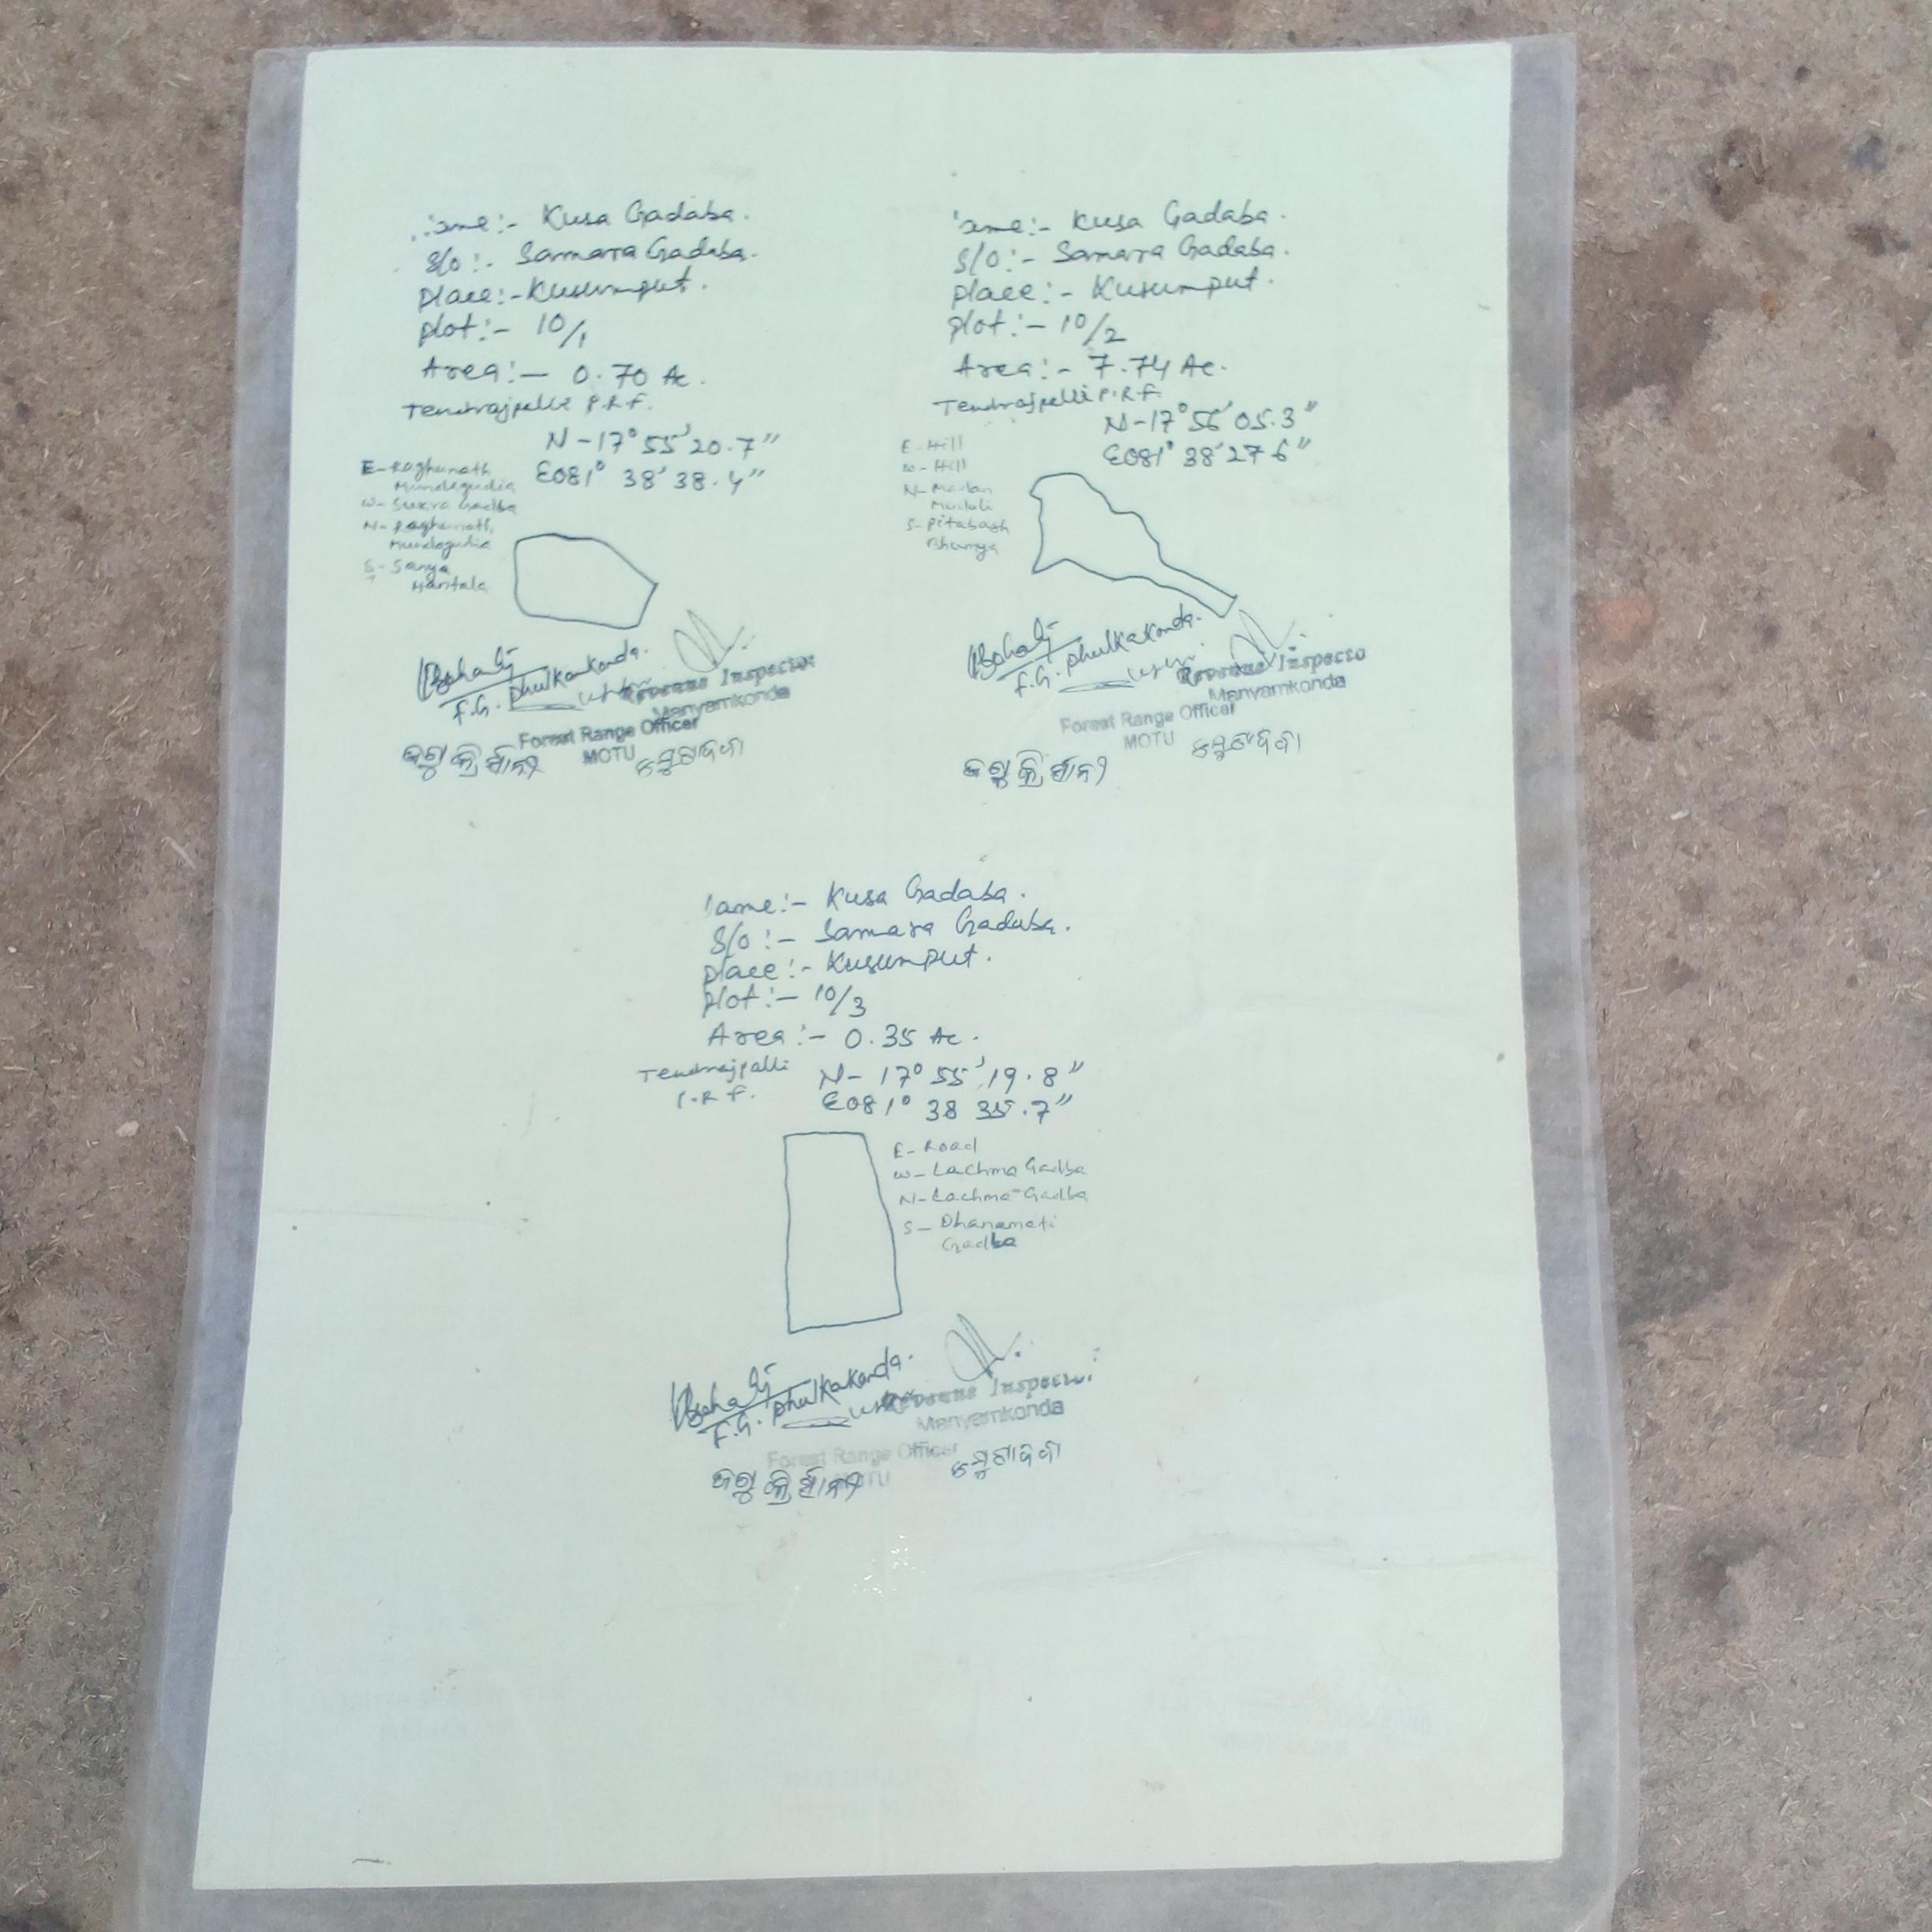 ame:- Kusa Gadaba.
S/o :- Samara Gadaba.
place:- Kusumput.
plot:- 10/1
Area:- 0.70 Ac.
Tendrajpalli P.R.F.
N-17° 55' 20.7"
E081° 38' 38.4"
E- Raghunath
Mundagudia
W- Sukra Gadba
N- Raghunath
Mundagudia
S- Sanya
Hantala
F.G. Phulkakonda.
Revenue Inspector
Manyamkonda
Forest Range Officer
MOTU
ame:- Kusa Gadaba.
S/o:- Samara Gadaba.
place:- Kusumput.
plot:- 10/2
Area:- 7.74 Ac.
Tendrajpalli P.R.F.
N-17° 56' 05.3"
E081° 38' 27.6"
E- Hill
W- Hill
N- Madan
Madali
S- Pitabash
Bhumya
F.G. Phulkakonda.
Revenue Inspecto
Manyamkonda
Forest Range Officer
MOTU
ame:- Kusa Gadaba.
S/o :- Samara Gadaba.
place:- Kusumput.
plot:- 10/3
Area:- 0.35 Ac.
Tendrajpalli
P.R.F.
N- 17° 55' 19.8"
E081° 38 35.7"
E- Road
W- Lachma Gadba
N- Lachma Gadba
S- Dhanamati
Gadba
F.G. Phulkakonda.
Revenue Inspector
Manyamkonda
Forest Range Officer
MOTU